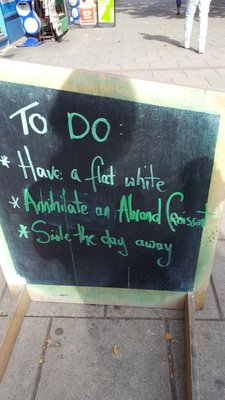 TO DO:
* Have a flat white
* Annihilate an Almond Croissant
* Smile the day away